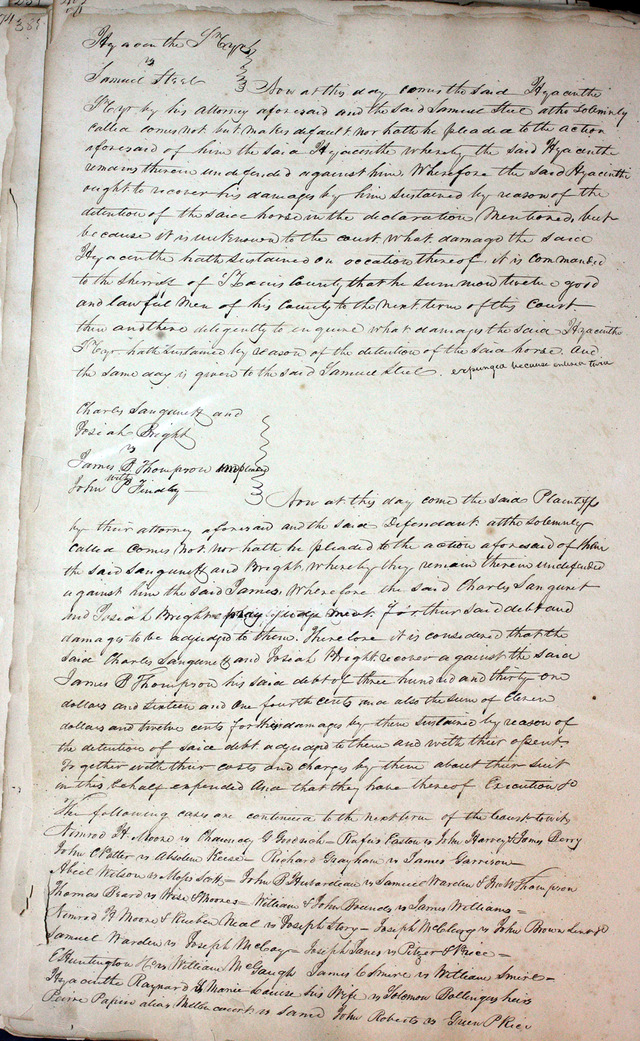 389
Hyacinthe St Cyr
vs
Samuel Steel
Now at this day comes the said Hyacinthe
St Cyr by his attorney aforesaid and the said Samuel Steel altho solemnly
called comes not but makes default nor hath he pleaded to the action
aforesaid of him the said Hyacinthe whereby the said Hyacinthe
remains therein undefended against him. Wherefore the said Hyacinthe
ought to recover his damages by him sustained by reason of the
detention of the said horse in the declaration Mentioned, but
because it is unknown to the court what damage the said
Hyacinthe hath sustained on occation thereof. it is commanded
to the Sherriff of St Louis County that he summon twelve good
and lawful Men of his County to the next term of this Court
then and there deligently to enquire what damages the said Hyacinthe
St Cyr hath sustained by reason of the detention of the said horse. And
the same day is given to the said Samuel Steel. expunged because entered twice
Charles Sanguinett and
Josiah Bright
vs
James B Thompson impleaded
with
John P Findley
Now at this day come the said Plaintiffs
by their attorney aforesaid and the said Defendant altho solemnly
called comes not, nor hath he pleaded to the action aforesaid of them
the said Sanguinett and Bright, whereby they remain therein undefended
against him the said James. Wherefore the said Charles Sanguinet
and Josiah Bright pray judgement for their said debt and
damages to be adjudged to them. Therefore it is considered that the
said Charles Sanguinett and Josiah Bright recover against the said
James B Thompson his said debt of three hundred and thirty one
dollars and sixteen and one fourth cents and also the sum of Eleven
dollars and twelve cents for their damages by them sustained by reason of
the detention of said debt adjudged to them and with their assent
Together with their costs and charges by them about their suit
in this behalf expended And that they have thereof Execution &c
The following cases are continued to the next term of the Court to wit
Nimrod H. Moore vs Chauncey G Goodrich - Rufus Easton vs John Harvey & James Berry
John C Potter vs Absolem Keese - Richard Grayham vs James Garrison -
Abiel Wilson vs Moses Scott - John B Hubardeau vs Samuel Warden & Jno W Thompson
Thomas Beard vs Wise & Moones - William & John Bounds vs James Williams -
Nimrod H Moore & Reuben Neal vs Joseph Story - Joseph McClery vs John Brown
Samuel Warden vs Joseph McCoy - Joseph Janes vs Pitzer & Price -
C Huntington vs William McGaugh James C Smire vs William Smire -
Hyacinthe Raynard & Marie Louise his Wife vs Solomon Bollingers heirs
Peirre Papin alias vs Same John Roberts vs Green P Rice